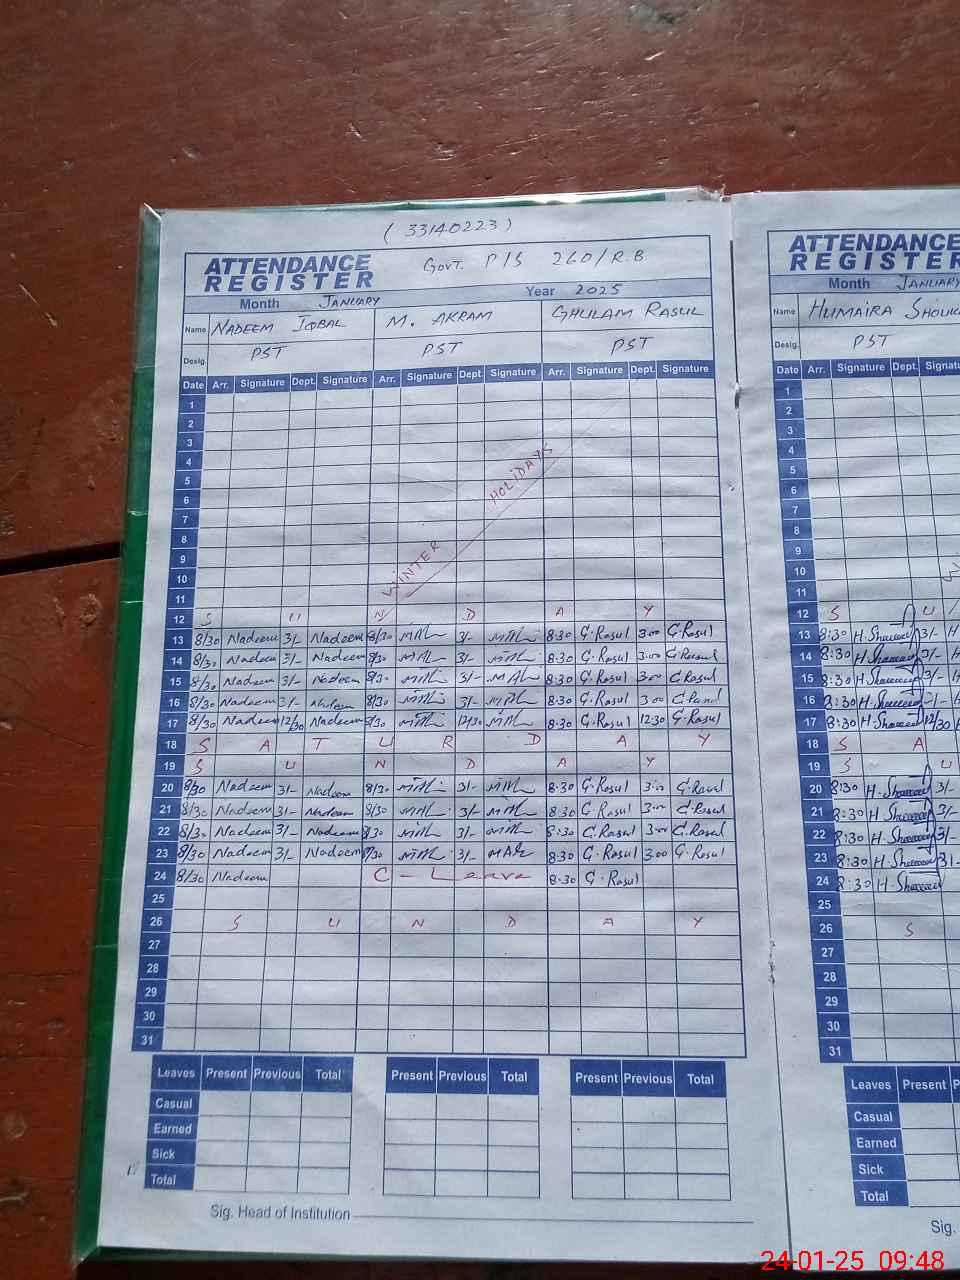 ( 33140223 )
ATTENDANCE REGISTER
GOVT. P/S 260/R.B
Month JANUARY Year 2025
Name NADEEM IQBAL M. AKRAM GHULAM RASUL
Desig. PST PST PST
Date Arr. Signature Dept. Signature Arr. Signature Dept. Signature Arr. Signature Dept. Signature
1
2
3
4
5
6
7
8
9
10
11
WINTER HOLIDAYS
12 S U N D A Y
13 8/30 Nadeem 3/- Nadeem 8/30 3/- 8:30 G.Rasul 3:00 G.Rasul
14 8/30 Nadeem 3/- Nadeem 8/30 3/- 8:30 G.Rasul 3:00 G.Rasul
15 8/30 Nadeem 3/- Nadeem 8/30 3/- 8:30 G.Rasul 3:00 G.Rasul
16 8/30 Nadeem 3/- Nadeem 8/30 3/- 8:30 G.Rasul 3:00 G.Rasul
17 8/30 Nadeem 12/30 Nadeem 8/30 12/30 8:30 G.Rasul 12:30 G.Rasul
18 S A T U R D A Y
19 S U N D A Y
20 8/30 Nadeem 3/- Nadeem 8/30 3/- 8:30 G.Rasul 3:00 G.Rasul
21 8/30 Nadeem 3/- Nadeem 8/30 3/- 8:30 G.Rasul 3:00 G.Rasul
22 8/30 Nadeem 3/- Nadeem 8/30 3/- 8:30 G.Rasul 3:00 G.Rasul
23 8/30 Nadeem 3/- Nadeem 8/30 3/- 8:30 G.Rasul 3:00 G.Rasul
24 8/30 Nadeem C - Leave 8:30 G.Rasul
25
26 S U N D A Y
27
28
29
30
31
Leaves Present Previous Total Present Previous Total Present Previous Total
Casual
Earned
Sick
Total
Sig. Head of Institution
ATTENDANCE
REGISTER
Month JANUARY
Name HUMAIRA
Desig. PST
Date Arr. Signature Dept.
1
2
3
4
5
6
7
8
9
10
11
12 S U
13 8:30 3/-
14 8:30 3/-
15 8:30 3/-
16 8:30
17 8:30 12/30
18 S A
19 S U
20 8:30 3/-
21 8:30 3/-
22 8:30 3/-
23 8:30 3/-
24 8:30
25
26 S
27
28
29
30
31
Leaves Present
Casual
Earned
Sick
Total
Sig.
24-01-25 09:48